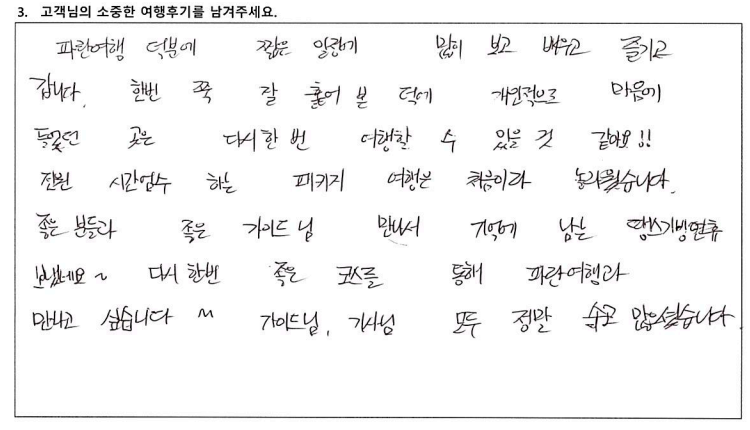 3. 고객님의 소중한 여행후기를 남겨주세요.
파란여행 덕분에 짧은 일정에 많이 보고 배우고 즐기고
갑니다. 한번 쭉 잘 훑어 본 덕에 개인적으로 마음에
들었던 곳은 다시 한 번 여행할 수 있을 것 같아요!!
전원 시간엄수 하는 패키지 여행은 처음이라 놀라웠습니다.
좋은 분들과 좋은 가이드님 만나서 기억에 남는 땡스기빙연휴
보냈네요~ 다시 한번 좋은 코스를 통해 파란여행과
만나고 싶습니다 ~ 가이드님, 기사님 모두 정말 수고 많으셨습니다.